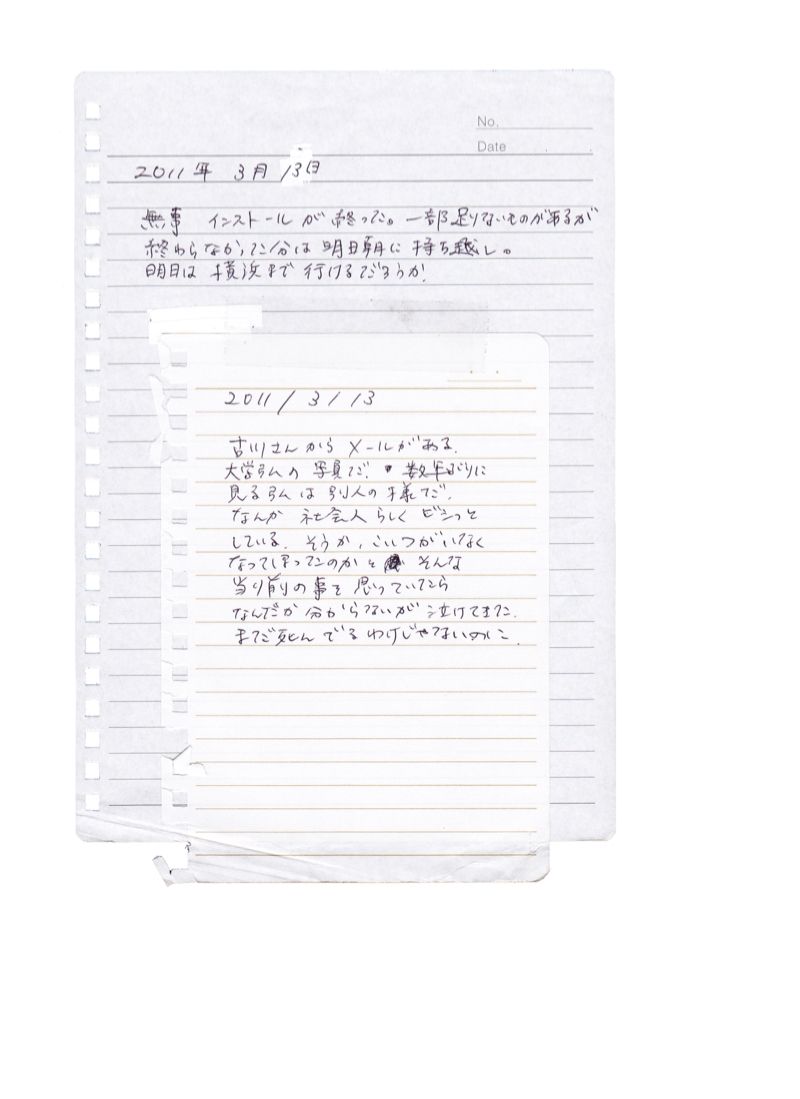 No.
Date
2011年 3月 13日
無事 インストールが終った。一部足りないものがあるが
終わらなかった分は明日朝に持ち越し。
明日は横浜まで行けるだろうか!
2011/3/13
古川さんからメールがある.
大学さんの写真だ. 数年ぶりに
見る さんは別人の様だ.
なんか社会人らしくビシっと
している. そうか, こいつがいなく
なってしまったのかと そんな
当り前の事を思っていたら
なんだか分からないが泣けてきた.
まだ死んでるわけじゃないのに.